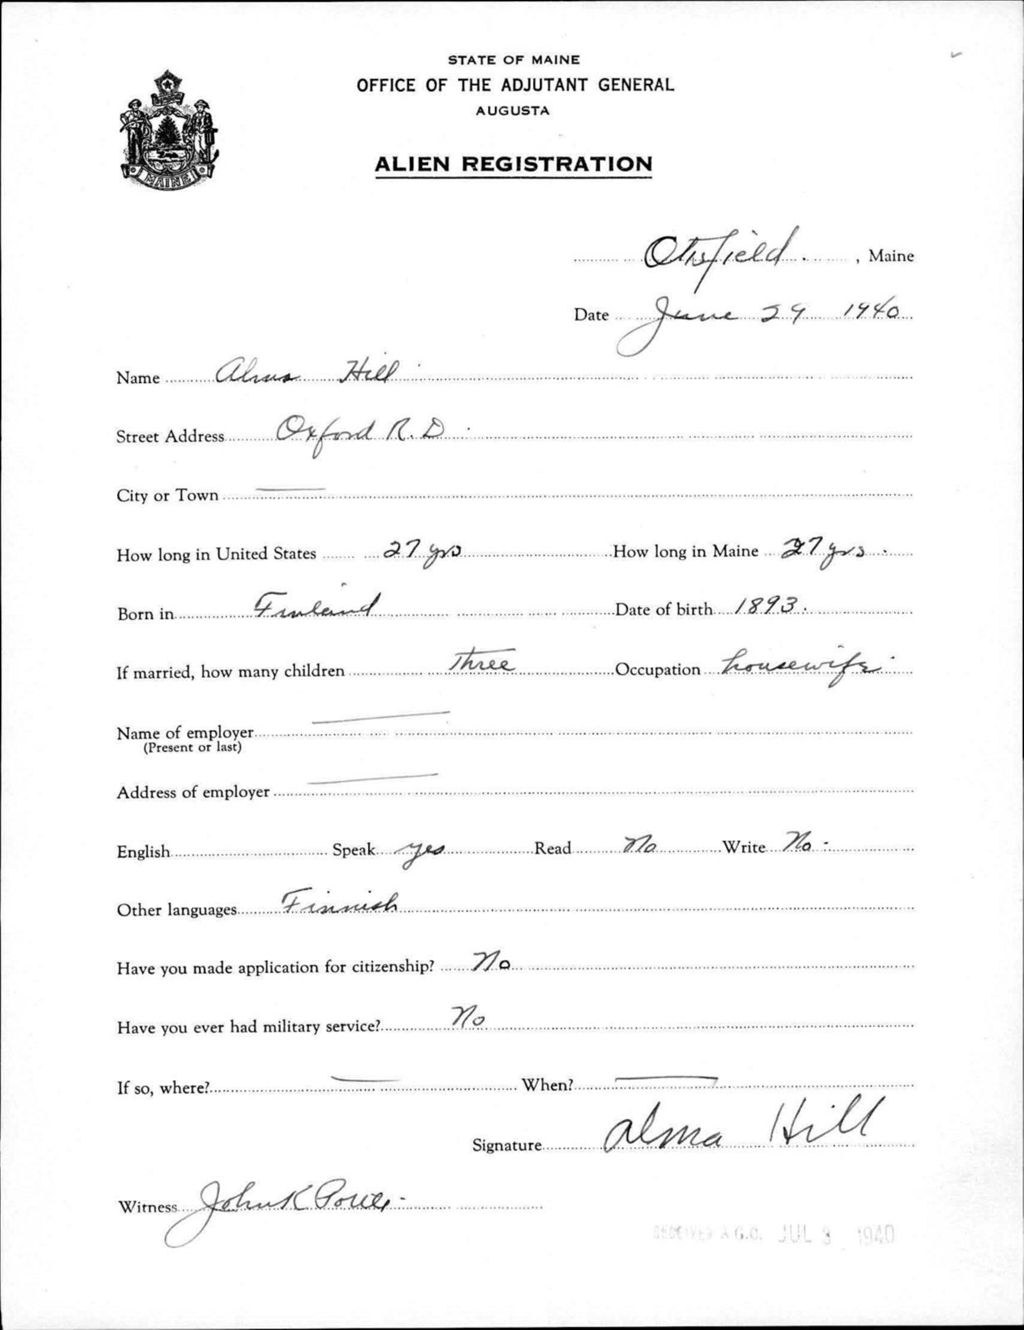 STATE OF MAINE
OFFICE OF THE ADJUTANT GENERAL
AUGUSTA
ALIEN REGISTRATION
MAINE
Otisfield, Maine
Date June 29 1940
Name Alma Hill
Street Address Oxford R. D
City or Town
How long in United States 27 yrs How long in Maine 27 yrs
Born in Finland Date of birth 1893.
If married, how many children Three Occupation housewife
Name of employer
(Present or last)
Address of employer
English Speak yes Read No Write No
Other languages Finnish
Have you made application for citizenship? No
Have you ever had military service? No
If so, where? When?
Signature Alma Hill
Witness John K
RECEIVED A.G.O. JUL 3 1940